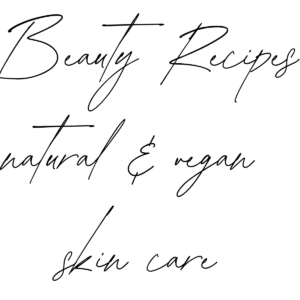 Beauty Recipes
natural & vegan
skin care